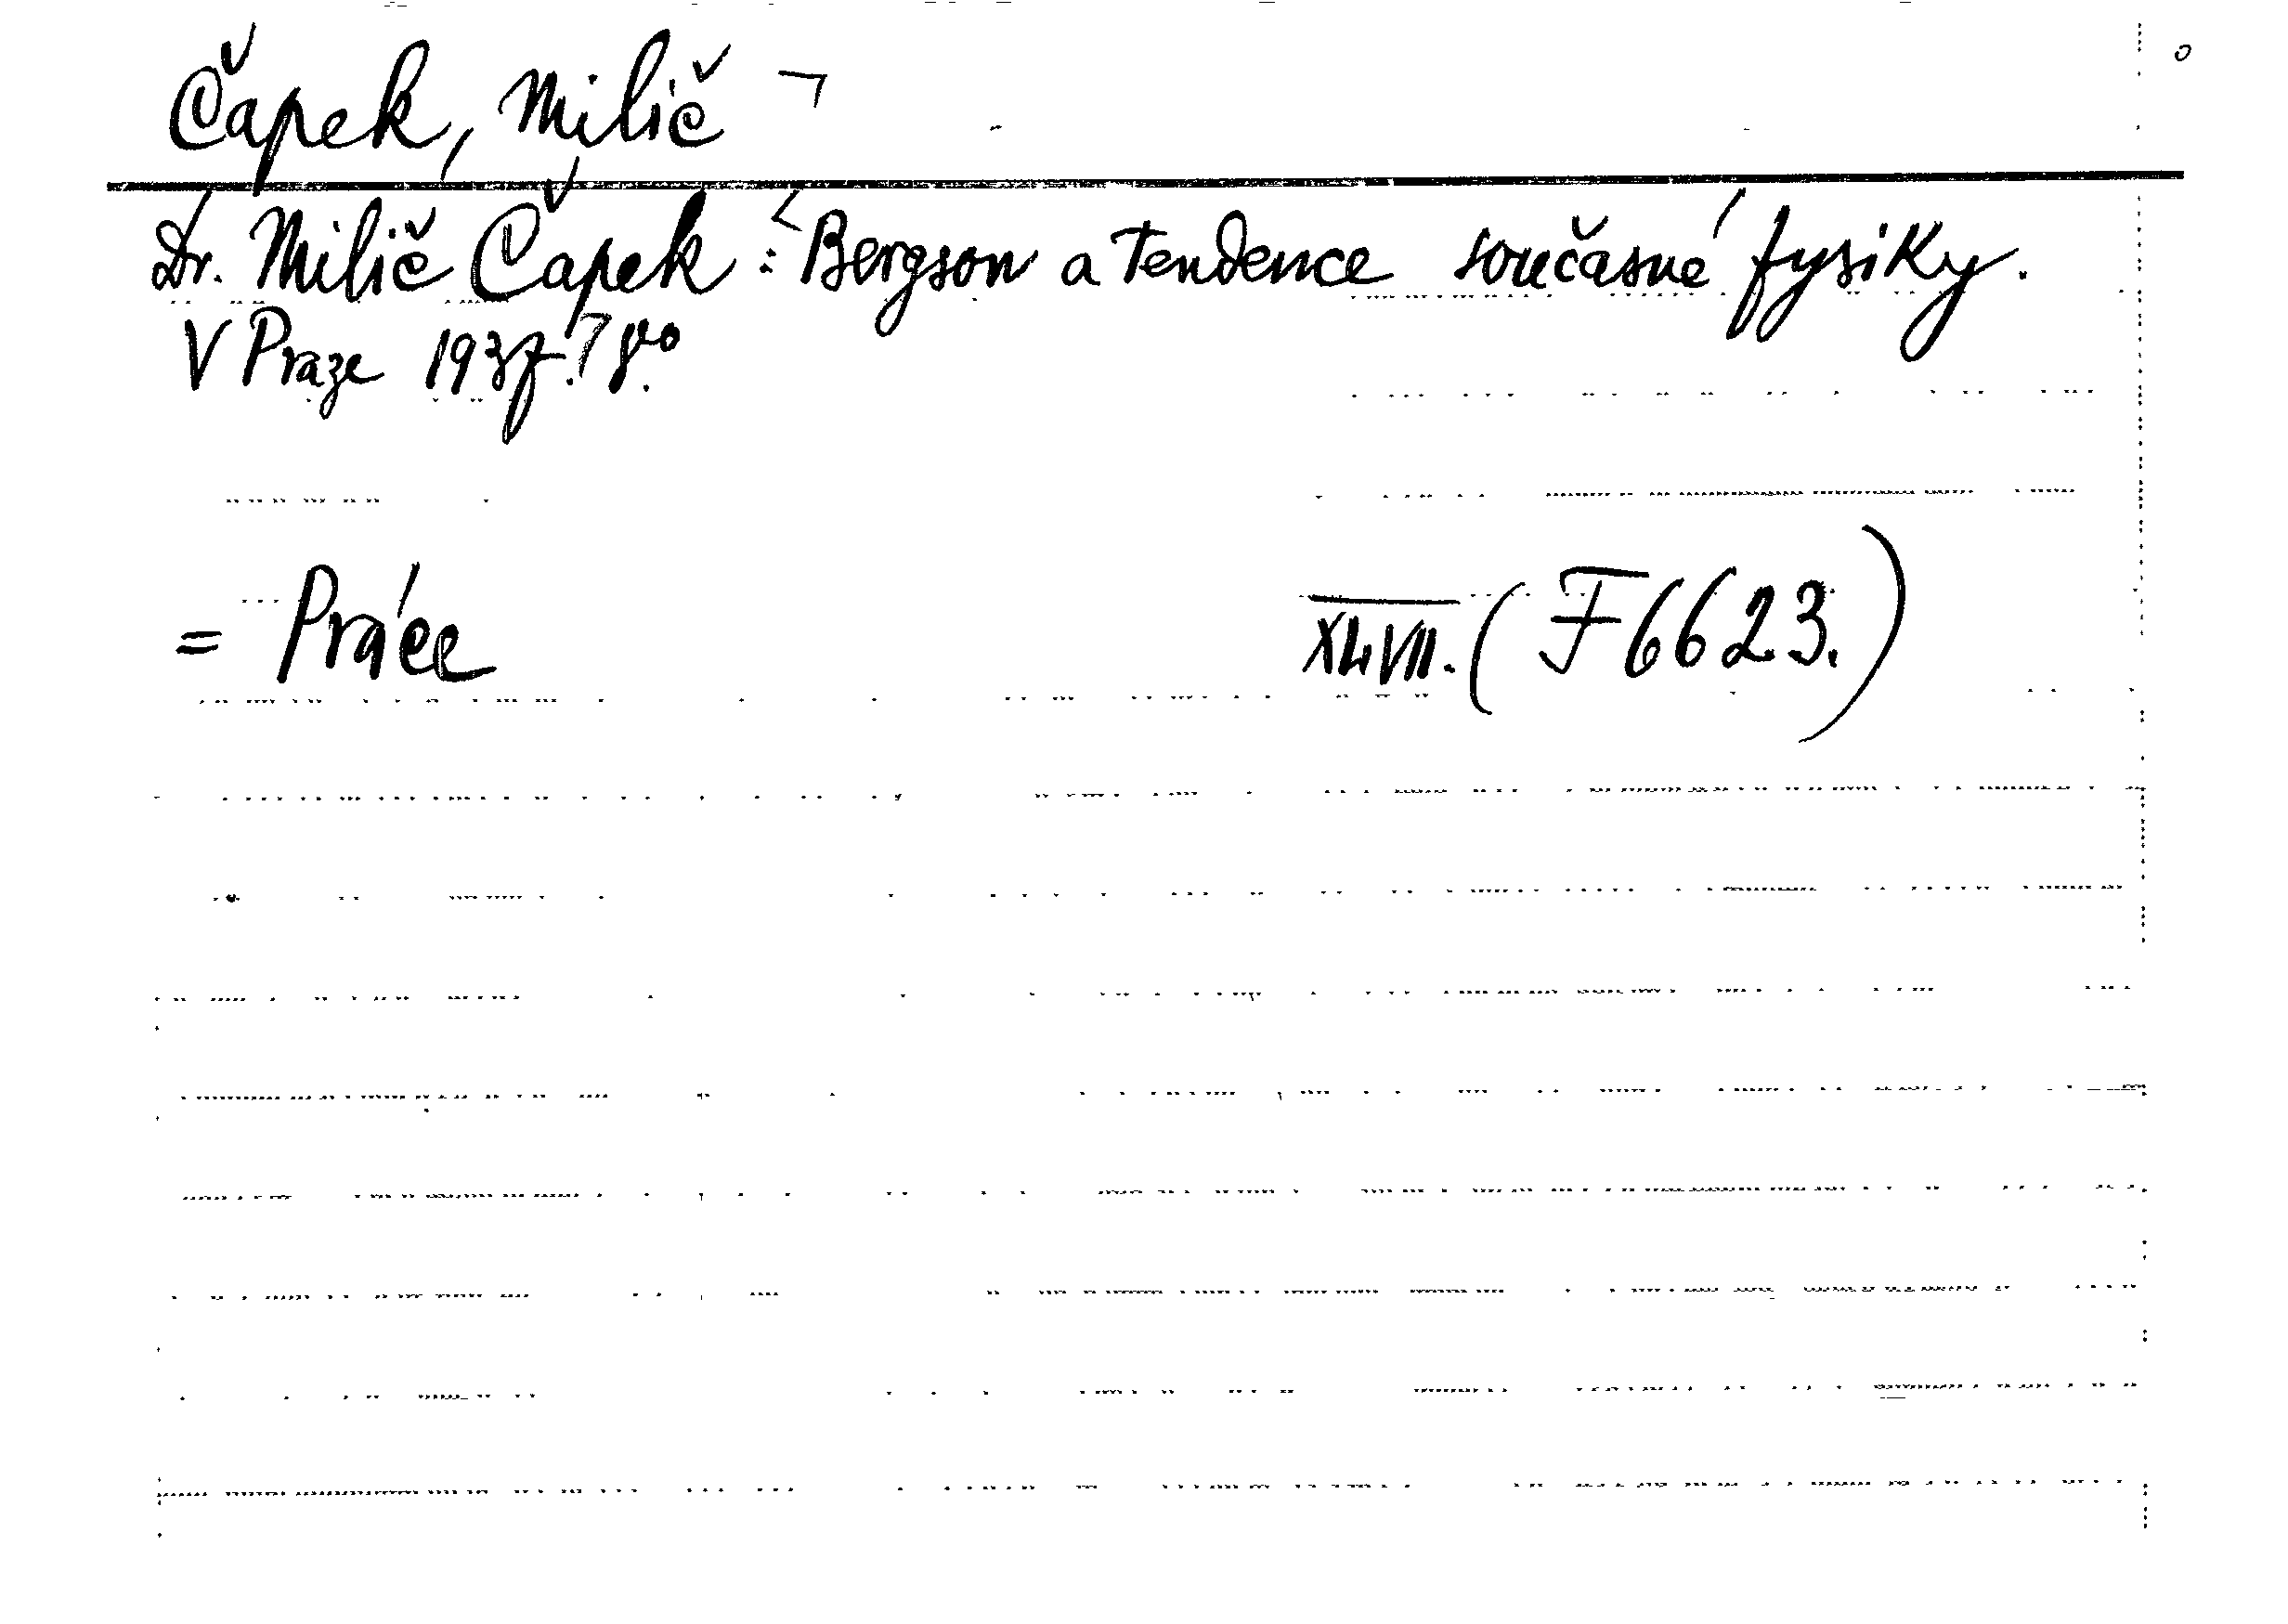 Čapek, Milič ¬
Dr. Milič Čapek: Bergson a tendence současné fysiky.
V Praze 1937. 8vo.
= Práce XLVII. (F6623.)